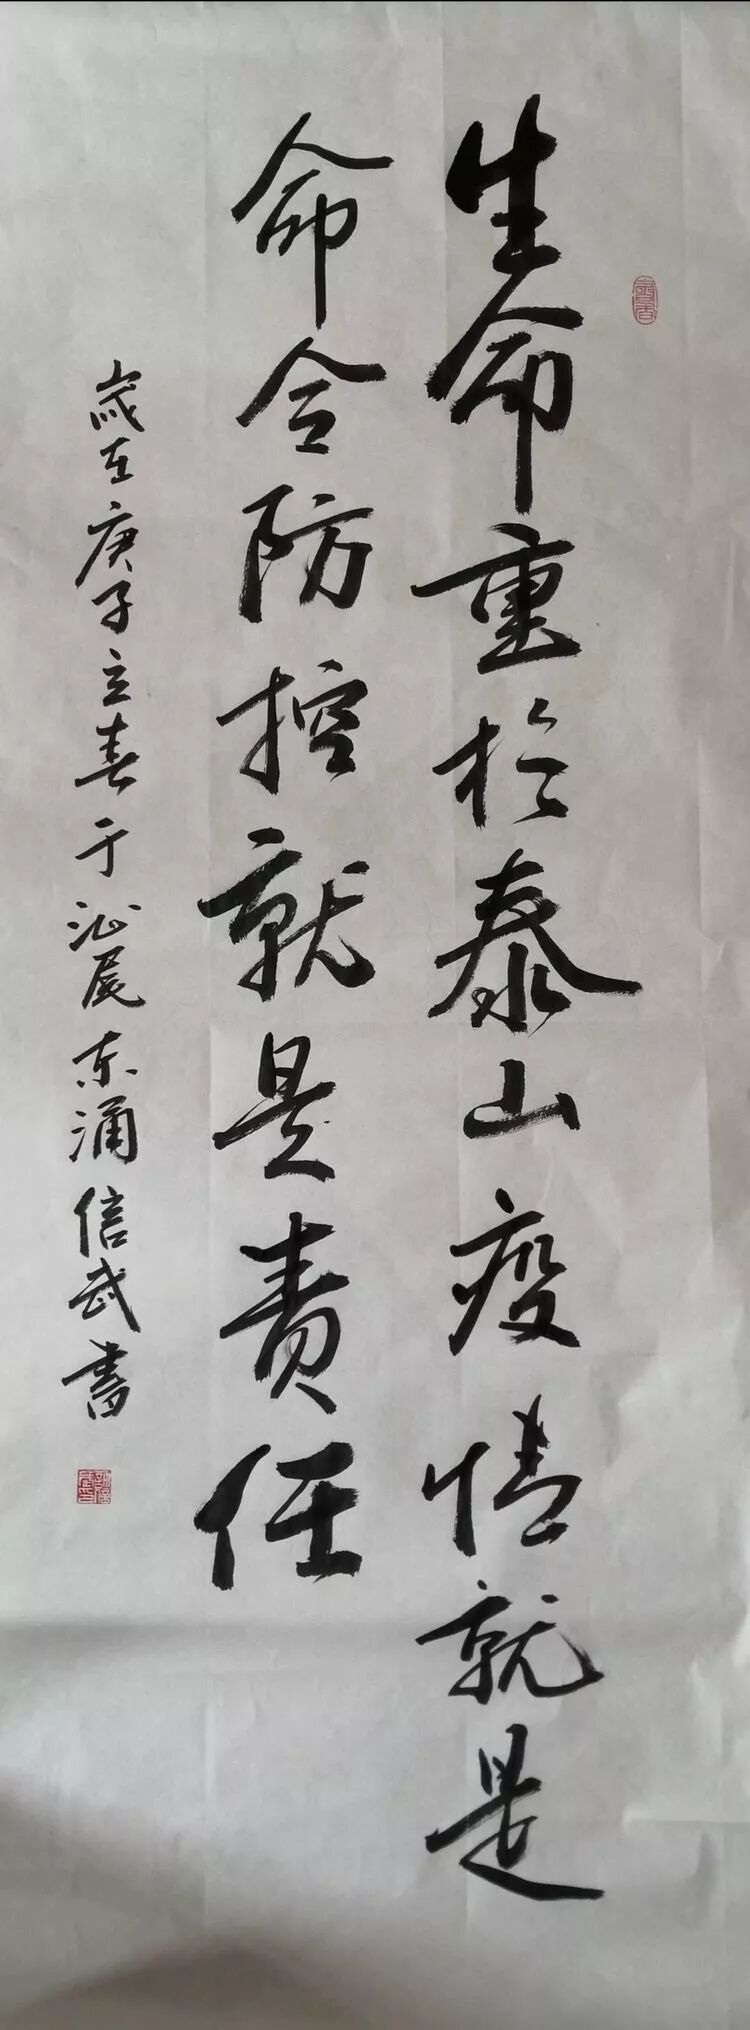 生命重於泰山疫情就是
命令防控就是责任
歲在庚子立春于沁尾东涌信武書